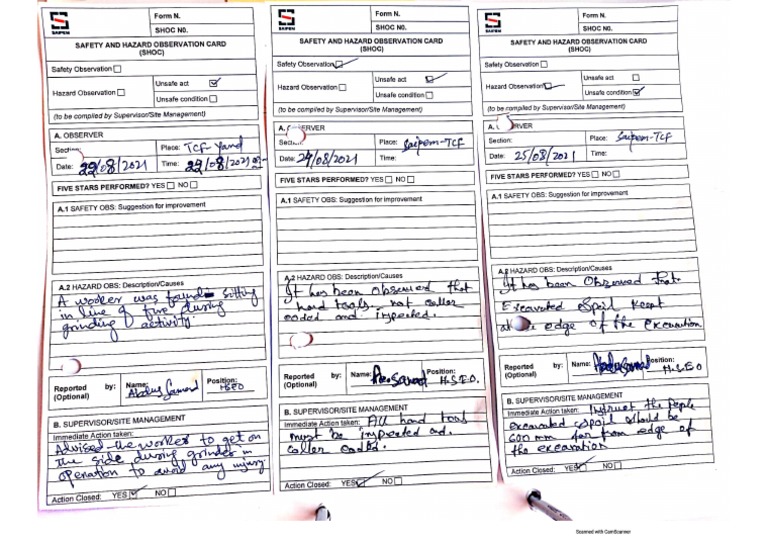 SAIPEM
Form N.
SHOC N0.
SAFETY AND HAZARD OBSERVATION CARD
(SHOC)
Safety Observation
Hazard Observation
Unsafe act
Unsafe condition
(to be compiled by Supervisor/Site Management)
A. OBSERVER
Section:
Place: TCF Yard
Date: 29/08/2021
Time: 29/08/2021
FIVE STARS PERFORMED? YES NO
A.1 SAFETY OBS: Suggestion for improvement
A.2 HAZARD OBS: Description/Causes
A worker was found sitting
in line of fire during
grinding activity
Reported by:
(Optional)
Name:
Abdus Samad
Position:
HSEO
B. SUPERVISOR/SITE MANAGEMENT
Immediate Action taken:
Advised the worker to get on
the side during grinder in
operation to avoid any injury
Action Closed: YES NO
SAIPEM
Form N.
SHOC N0.
SAFETY AND HAZARD OBSERVATION CARD
(SHOC)
Safety Observation
Hazard Observation
Unsafe act
Unsafe condition
(to be compiled by Supervisor/Site Management)
A. ERVER
Place: Saipem-TCF
Date: 24/08/2021
Time:
FIVE STARS PERFORMED? YES NO
A.1 SAFETY OBS: Suggestion for improvement
A.2 HAZARD OBS: Description/Causes
It has been observed that
hand tools not coller
coded and inspected.
Reported by:
(Optional)
Name:
Position:
H.S.E.O.
B. SUPERVISOR/SITE MANAGEMENT
Immediate Action taken: All hand tools
must be inspected and.
coller coded.
Action Closed: YES NO
SAIPEM
Form N.
SHOC N0.
SAFETY AND HAZARD OBSERVATION CARD
(SHOC)
Safety Observation
Hazard Observation
Unsafe act
Unsafe condition
(to be compiled by Supervisor/Site Management)
RVER
Section:
Place: Saipem-TCF
Date: 25/08/2021
Time:
FIVE STARS PERFORMED? YES NO
A.1 SAFETY OBS: Suggestion for improvement
A.2 HAZARD OBS: Description/Causes
It has been Observed that.
Excavated Spoil kept
at edge of the excavation
Reported by:
(Optional)
Name:
Position:
H.S.E.O
B. SUPERVISOR/SITE MANAGEMENT
Immediate Action taken: Instruct the people
excavated spoil should be
600 mm far from edge of
the excavation
Action Closed: YES NO
Scanned with CamScanner